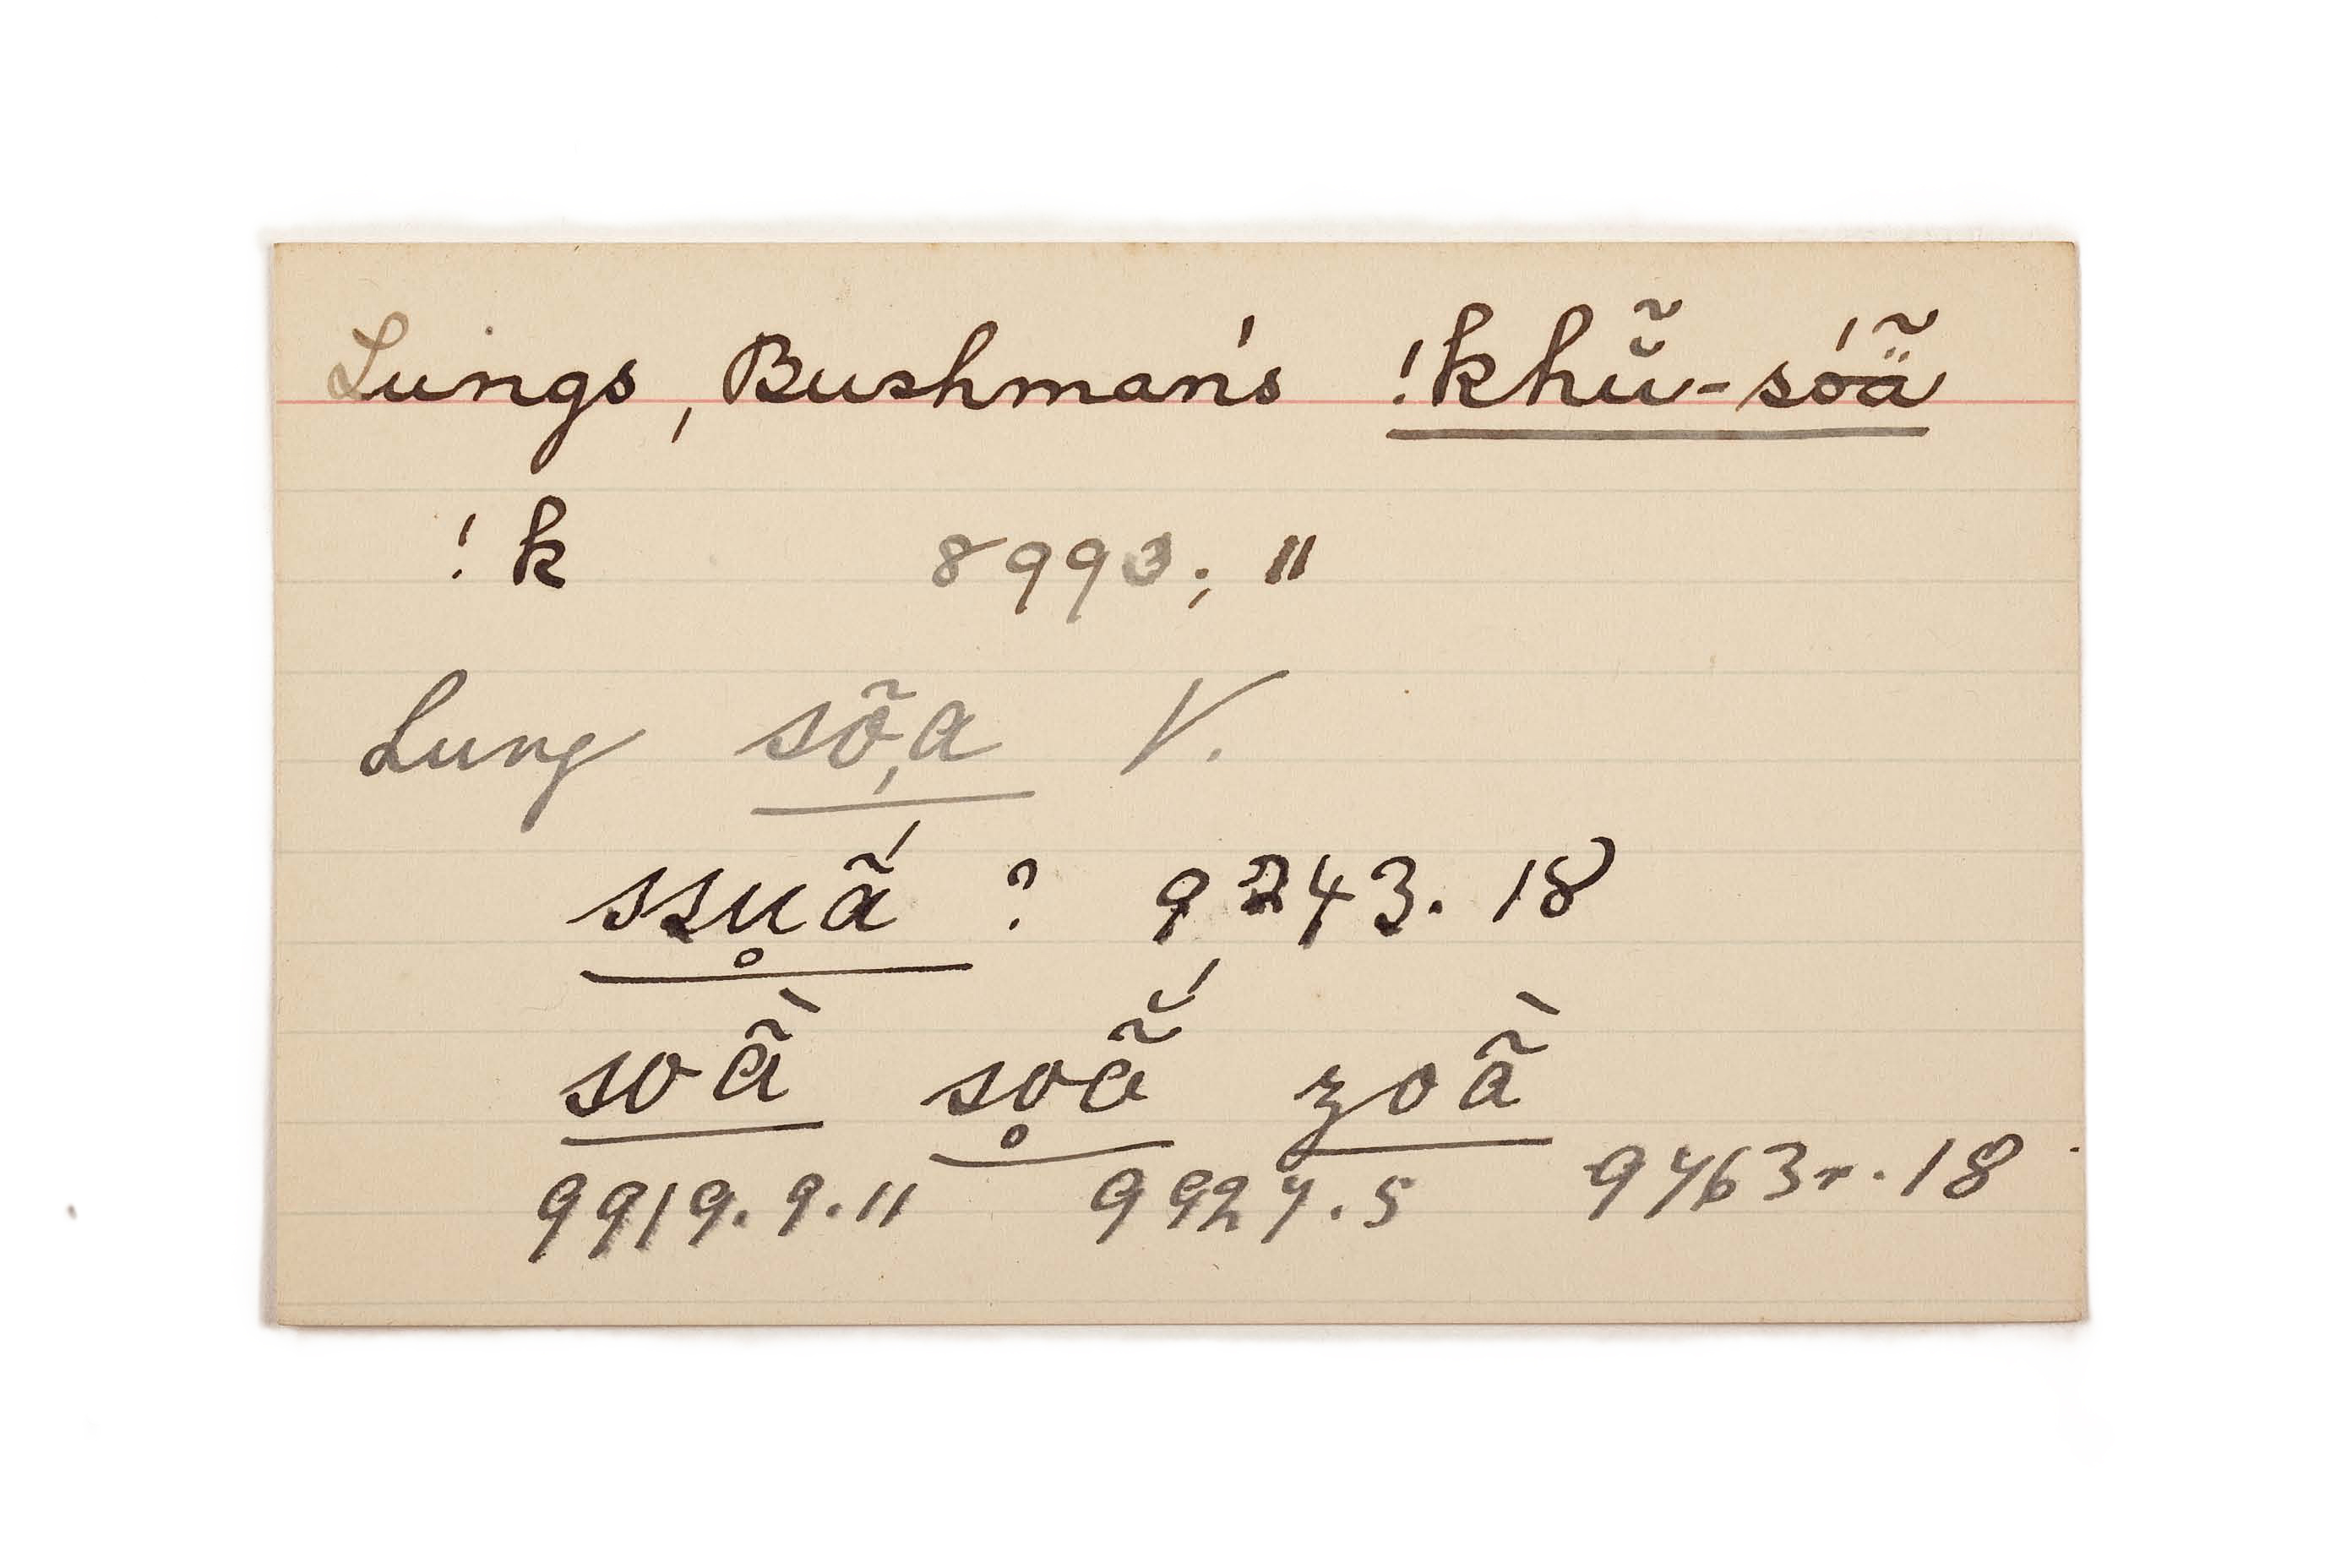 Lungs, Bushman's !khŭ̃-sóä̃
!k 8993; 11
Lung sõ̦a V.
ssu̥ã́ ? 9243. 18
soã̀ so̥ã̆́ zoã̀
9919. 9. 11 9927. 5 9463r. 18